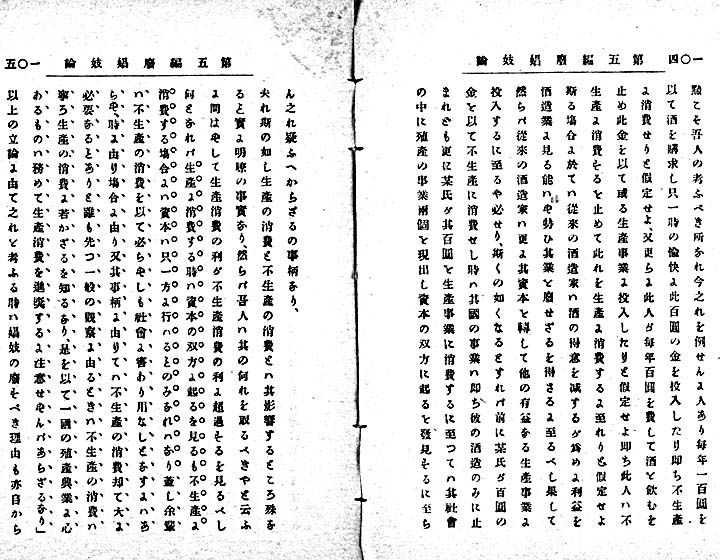 第五編廢娼妓論　一〇四
點こそ吾人の考ふべき所なれ今之れを例せん人あり毎年一百圓を
以て酒を購求し只一時の愉快よ此百圓の金を投入したり即ち不生産
よ消費せりと假定せよ、又更らよ此人が毎年百圓を費して酒を飲むを
止め此金を以て或る生産事業よ投入したりと假定せよ即ち此人ハ不
生産よ消費そるを止めて此れを生産よ消費するよ至れりと假定せよ
斯る塲合よ於てハ從來の酒造家ハ酒の得意を减するが爲めよ利益を
酒造業よ見る能ハ\u305aず勢ひ其業を廢せざるを得さるよ至るべし果して
然らバ從來の酒造家ハ更よ其資本を轉して他の有益なる生産事業よ
投入するに至るや必せり、斯くの如くなるとすれバ前に某氏が百圓の
金を以て不生産に消費せし時ハ其國の事業ハ即ち彼の酒造のみに止
まれども更に某氏が其百圓を生産事業に消費するに至つてハ其社會
の中に殖産の事業兩個を現出し資本の双方に起るを發見そるに至ら
第五編廢娼妓論　一〇五
ん之れ疑ふへからざるの事柄なり、
夫れ斯の如し生産の消費と不生産の消費とハ其影響するところ殊な
ると實よ明瞭の事實なり、然らバ吾人ハ其の何れを取るべきやと云ふ
よ問はずして生産消費の利が不生産消費の利よ超過そるを見るべし
何となれバ生産よ消費する時ハ資本の双方よ起るを見るも不生産よ
消費する塲合よハ資本ハ只一方よ行ハるとのみなれハなり蓋し余輩
ハ不生産の消費を以て必らずしも社會よ害あり用なしとなすよハあ
らず、時よ由り塲合よ由り又其事柄よ由りてハ不生産の消費却て大よ
必要なるとありと雖も先つ一般の觀察よ由るときハ不生産の消費ハ
寧ろ生産の消費よ若かざるを知るなり、是を以て一國の殖産興業よ心
あるものハ務めて生産消費を奬奬するよ注意せずんバあらざるなり」
以上の立論よ由て之れを考ふる時ハ娼妓の廢そべき理由も亦自から